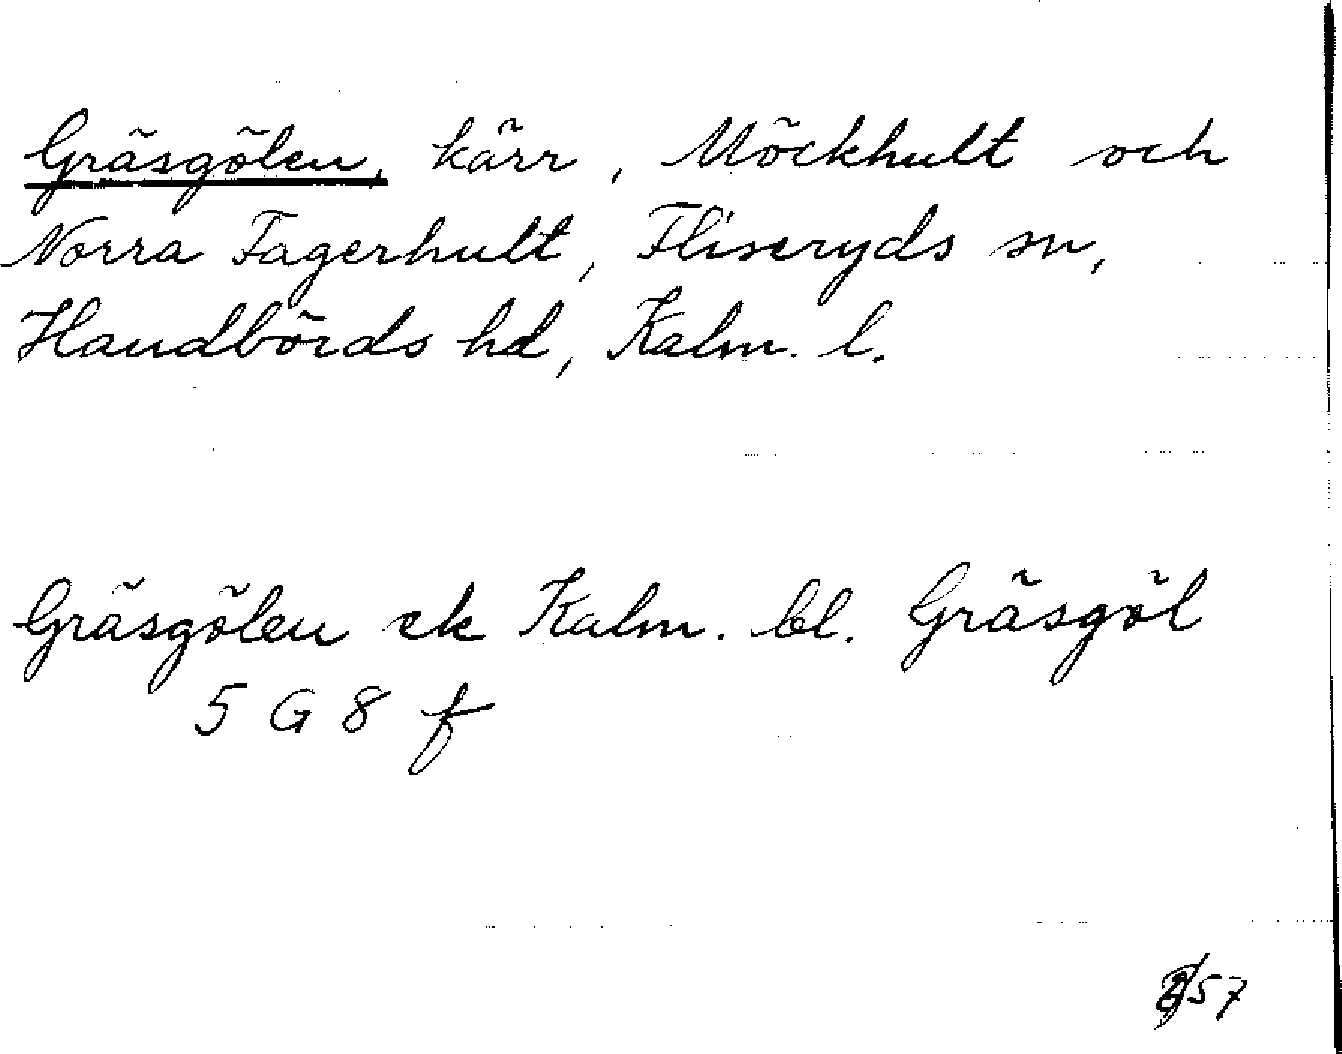 Gräsgölen, kärr, Möckhult och
Norra Fagerhult, Fliseryds sn,
Handbörds hd, Kalm. l.
Gräsgölen ek Kalm. bl. Gräsgöl
5 G 8 f
57